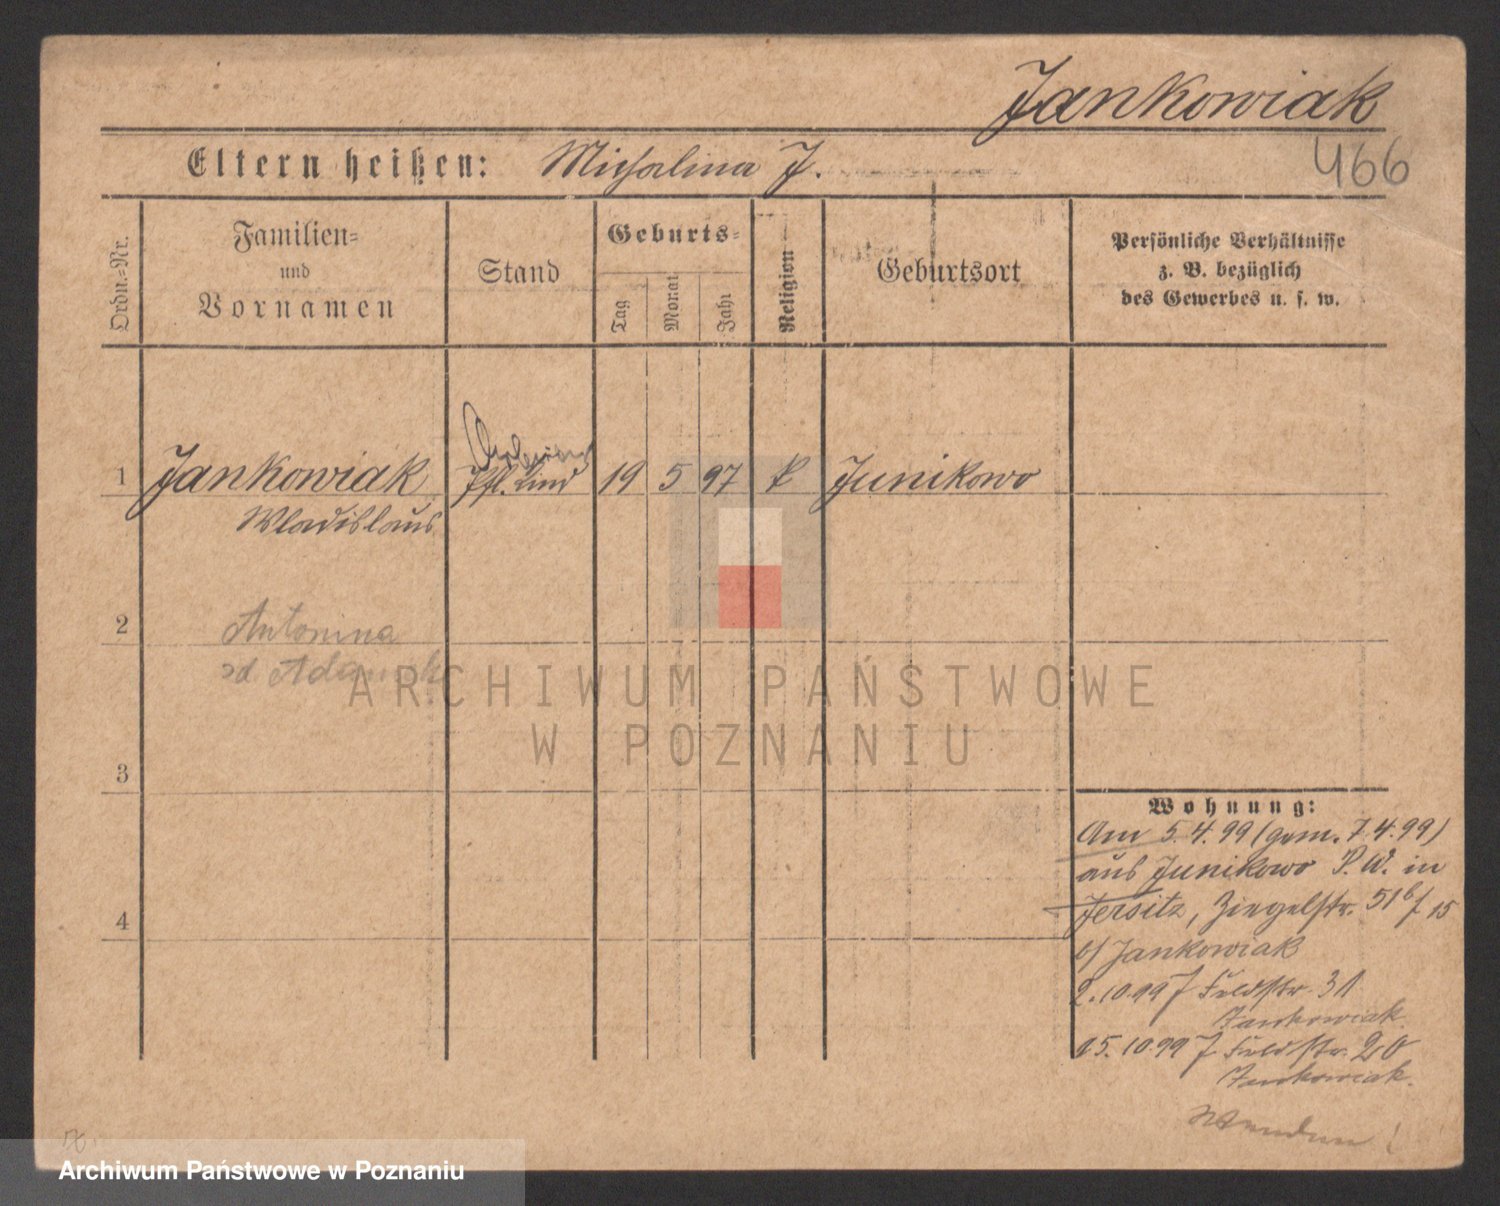 Jankowiak
466
Eltern heißen: Michalina J.
Ordn.=Nr.
Familien=
und
Vornamen
Stand
Geburts=
Tag
Monat
Jahr
Religion
Geburtsort
Persönliche Verhältnisse
z. B. bezüglich
des Gewerbes u. s. w.
1 Jankowiak Pfl. Kind 19 5 97 k Junikowo
Wladislaus
2 Antonina
3
4
Wohnung:
Am 5.4.99 (gem. 7.4.99)
aus Junikowo P. W. in
Jersitz, Ziegelstr. 51b/ 15
b/ Jankowiak
2.10.99 J Feldstr. 31
Jankowiak.
15.10.99 J Feldstr. 20
Jankowiak.
Wenden!
ARCHIWUM PAŃSTWOWE
W POZNANIU
Archiwum Państwowe w Poznaniu